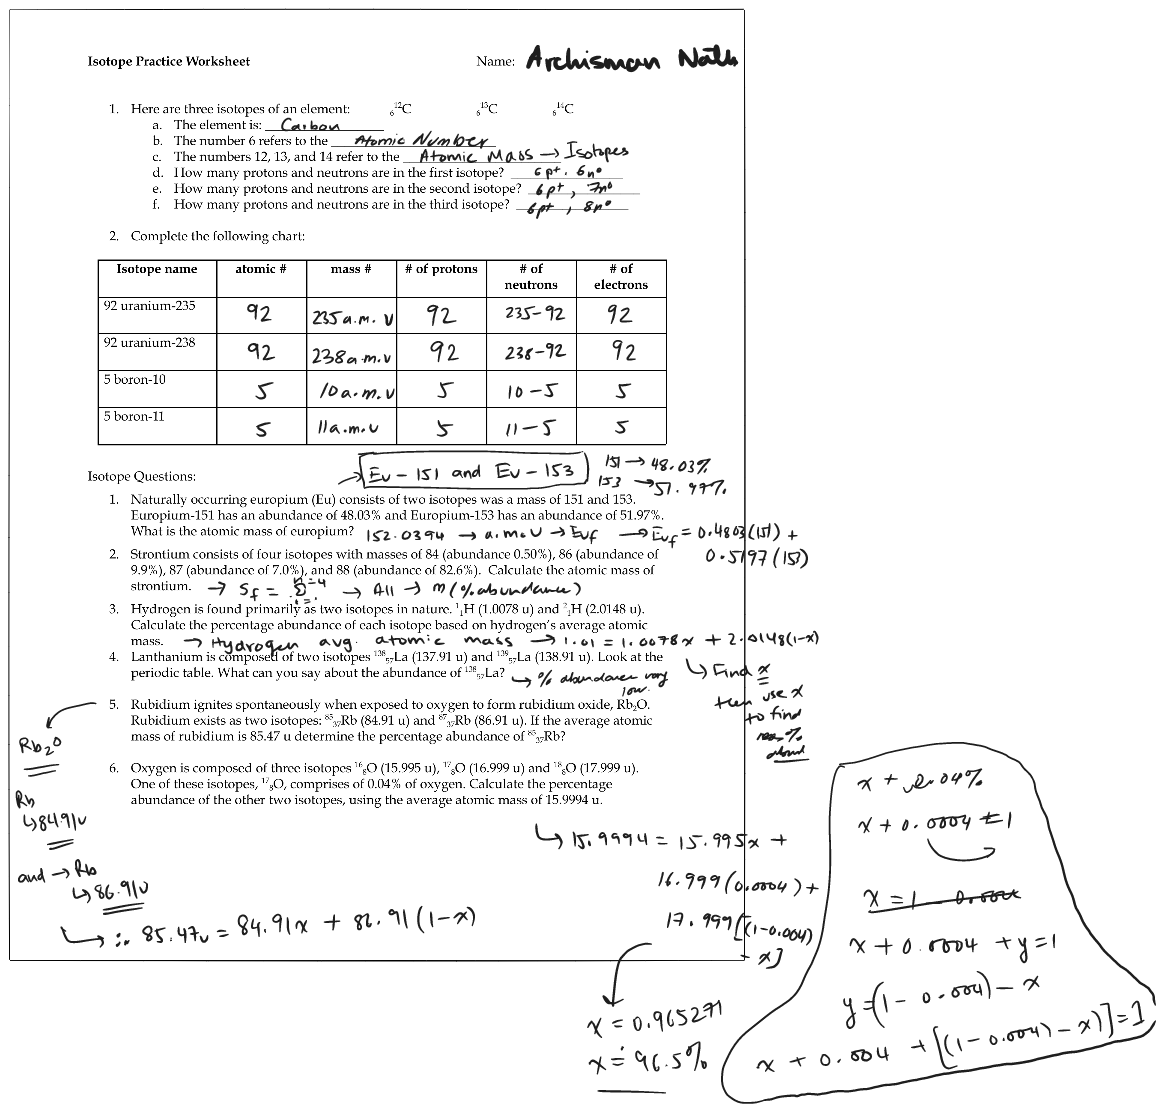 Isotope Practice Worksheet Name: Archisman Nath
1. Here are three isotopes of an element: ¹²₆C ¹³₆C ¹⁴₆C
a. The element is: Carbon
b. The number 6 refers to the Atomic Number
c. The numbers 12, 13, and 14 refer to the Atomic Mass → Isotopes
d. How many protons and neutrons are in the first isotope? 6p+, 6n°
e. How many protons and neutrons are in the second isotope? 6p+, 7n°
f. How many protons and neutrons are in the third isotope? 6p+, 8n°
2. Complete the following chart:
Isotope name atomic # mass # # of protons # of neutrons # of electrons
92 uranium-235 92 235a.m.u 92 235-92 92
92 uranium-238 92 238a.m.u 92 238-92 92
5 boron-10 5 10a.m.u 5 10-5 5
5 boron-11 5 11a.m.u 5 11-5 5
Isotope Questions:
→ Eu-151 and Eu-153
151 → 48.03%
153 → 51.97%
1. Naturally occurring europium (Eu) consists of two isotopes was a mass of 151 and 153.
Europium-151 has an abundance of 48.03% and Europium-153 has an abundance of 51.97%.
What is the atomic mass of europium? 152.0394 → a.m.u → Euf → Euf = 0.4803(151) +
0.5197(153)
2. Strontium consists of four isotopes with masses of 84 (abundance 0.50%), 86 (abundance of
9.9%), 87 (abundance of 7.0%), and 88 (abundance of 82.6%). Calculate the atomic mass of
strontium. → Sf = Σ → All → m(% abundance)
3. Hydrogen is found primarily as two isotopes in nature. ¹₁H (1.0078 u) and ²₁H (2.0148 u).
Calculate the percentage abundance of each isotope based on hydrogen's average atomic
mass. → Hydrogen avg. atomic mass → 1.01 = 1.0078x + 2.0148(1-x)
↳ Find x
then use x
to find
%
abund
4. Lanthanium is composed of two isotopes ¹³⁸₅₇La (137.91 u) and ¹³⁹₅₇La (138.91 u). Look at the
periodic table. What can you say about the abundance of ¹³⁸₅₇La? ↳ % abundance very
low.
5. Rubidium ignites spontaneously when exposed to oxygen to form rubidium oxide, Rb₂O.
Rubidium exists as two isotopes: ⁸⁵₃₇Rb (84.91 u) and ⁸⁷₃₇Rb (86.91 u). If the average atomic
mass of rubidium is 85.47 u determine the percentage abundance of ⁸⁵₃₇Rb?
Rb₂O
Rb
↳ 84.91u
and → Rb
↳ 86.91u
↳ ∴ 85.47u = 84.91x + 86.91(1-x)
6. Oxygen is composed of three isotopes ¹⁶₈O (15.995 u), ¹⁷₈O (16.999 u) and ¹⁸₈O (17.999 u).
One of these isotopes, ¹⁷₈O, comprises of 0.04% of oxygen. Calculate the percentage
abundance of the other two isotopes, using the average atomic mass of 15.9994 u.
↳ 15.9994 = 15.995x +
16.999(0.0004) +
17.999[(1-0.004)
- x]
x = 0.965271
x ≐ 96.5%
x + 0.04%
x + 0.0004 = 1
x = 1 - 0.0004
x + 0.0004 + y = 1
y = (1 - 0.004) - x
x + 0.004 + [(1-0.004)-x)] = 1